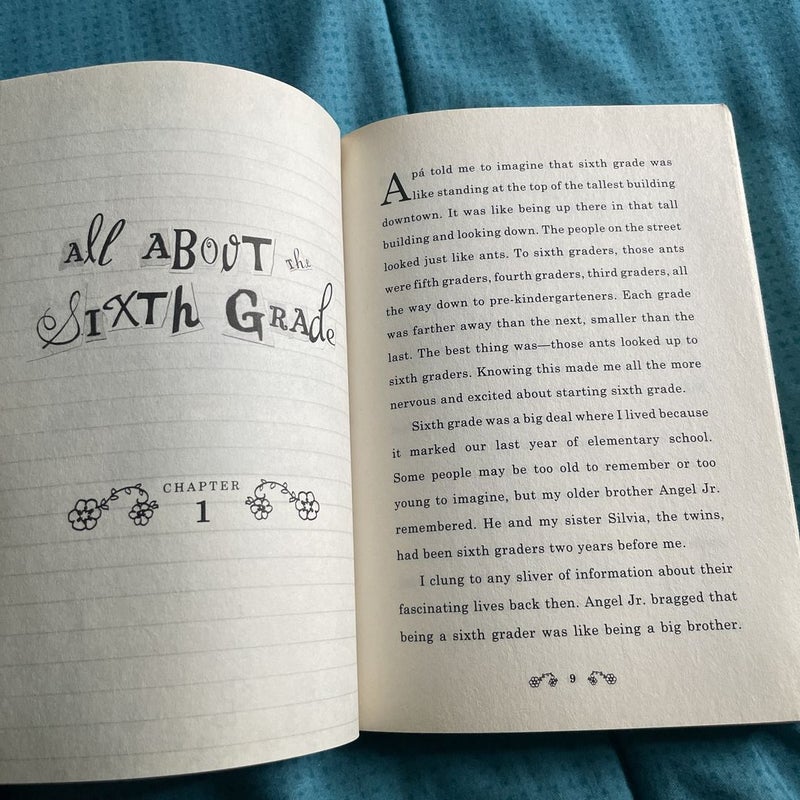 All ABOUT the
SIXTH GRADe
CHAPTER
1
Apá told me to imagine that sixth grade was
like standing at the top of the tallest building
downtown. It was like being up there in that tall
building and looking down. The people on the street
looked just like ants. To sixth graders, those ants
were fifth graders, fourth graders, third graders, all
the way down to pre-kindergarteners. Each grade
was farther away than the next, smaller than the
last. The best thing was—those ants looked up to
sixth graders. Knowing this made me all the more
nervous and excited about starting sixth grade.
Sixth grade was a big deal where I lived because
it marked our last year of elementary school.
Some people may be too old to remember or too
young to imagine, but my older brother Angel Jr.
remembered. He and my sister Silvia, the twins,
had been sixth graders two years before me.
I clung to any sliver of information about their
fascinating lives back then. Angel Jr. bragged that
being a sixth grader was like being a big brother.
9